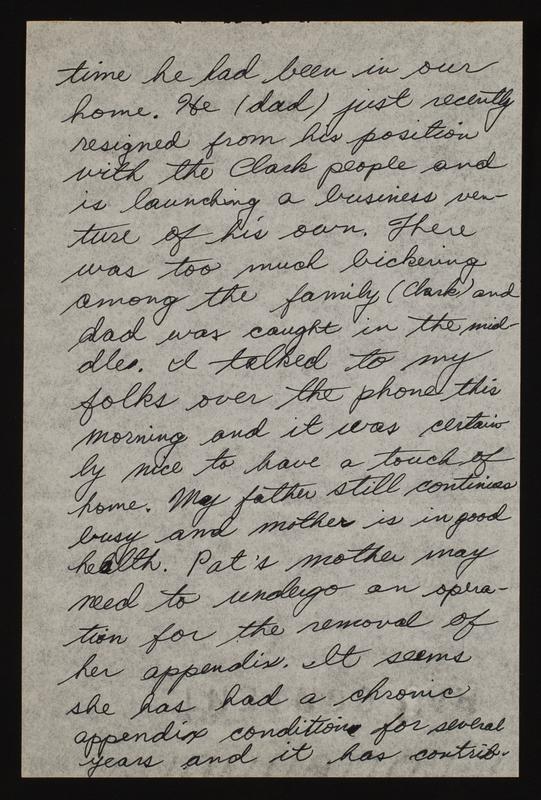 time he had been in our
home. He (dad) just recently
resigned from his position
with the Clark people and
is launching a business ven-
ture of his own. There
was too much bickering
among the family (Clark) and
dad was caught in the mid-
dle. I talked to my
folks over the phone this
morning and it was certain
ly nice to have a touch of
home. My father still continues
busy and mother is in good
health. Pat's mother may
need to undergo an opera-
tion for the removal of
her appendix. It seems
she has had a chronic
appendix condition for several
years and it has contrib-